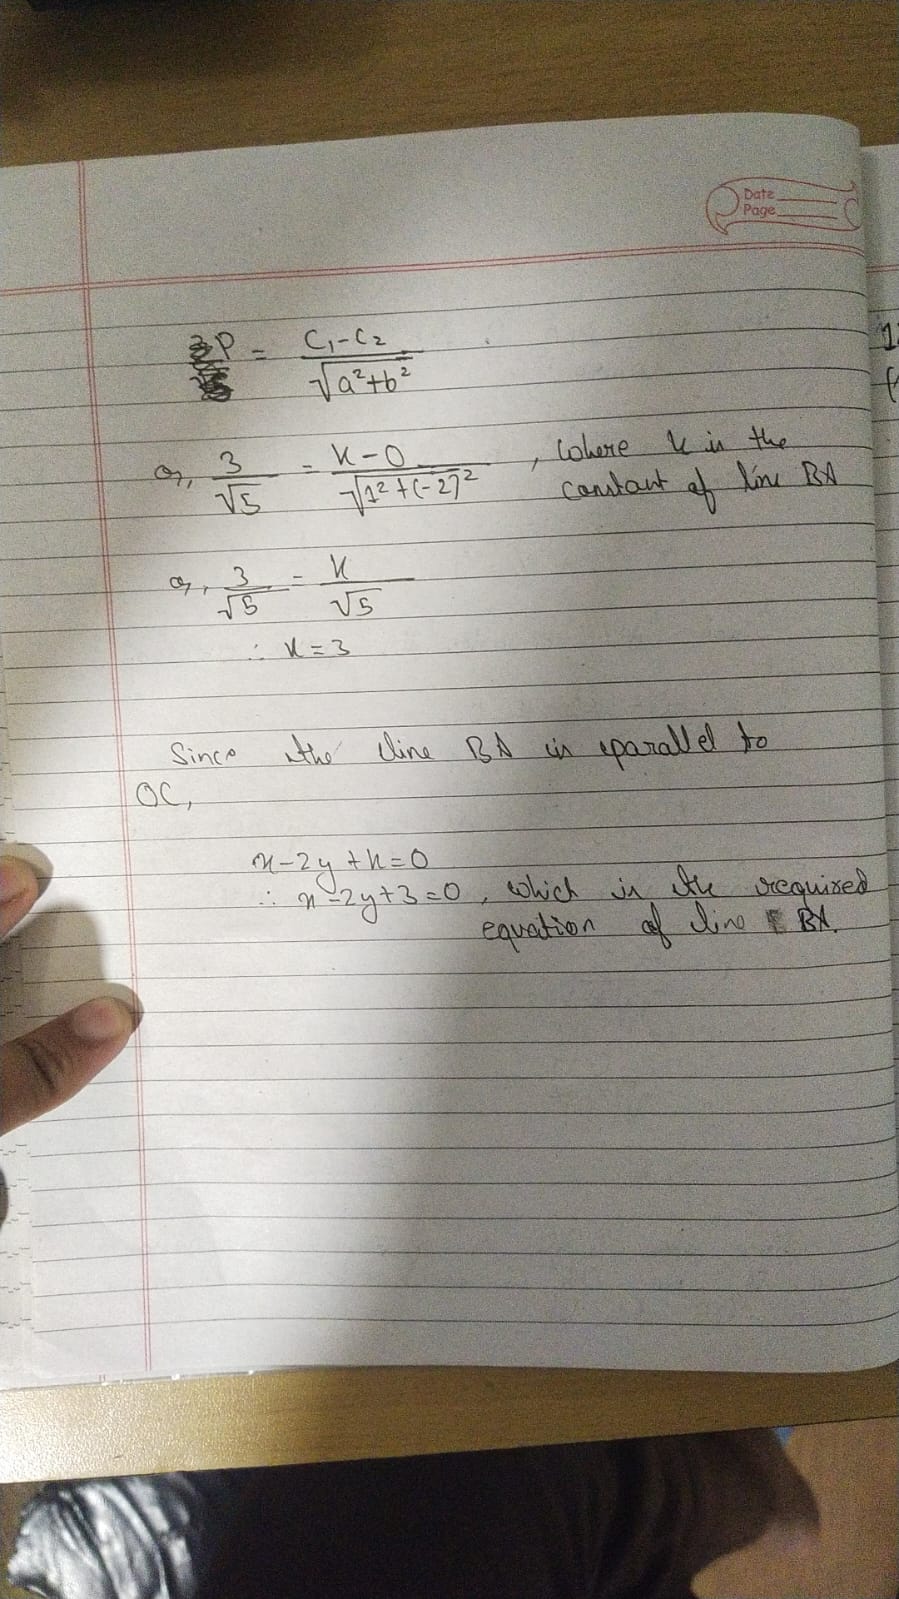 Date
Page
P = C₁-C₂ / √a²+b²
or, 3/√5 = k-0 / √1²+(-2)² , where k is the
constant of line BA
or, 3/√5 = k/√5
∴ k=3
Since the line BA is parallel to
OC,
x-2y+k=0
∴ x-2y+3=0, which is the required
equation of line BA.